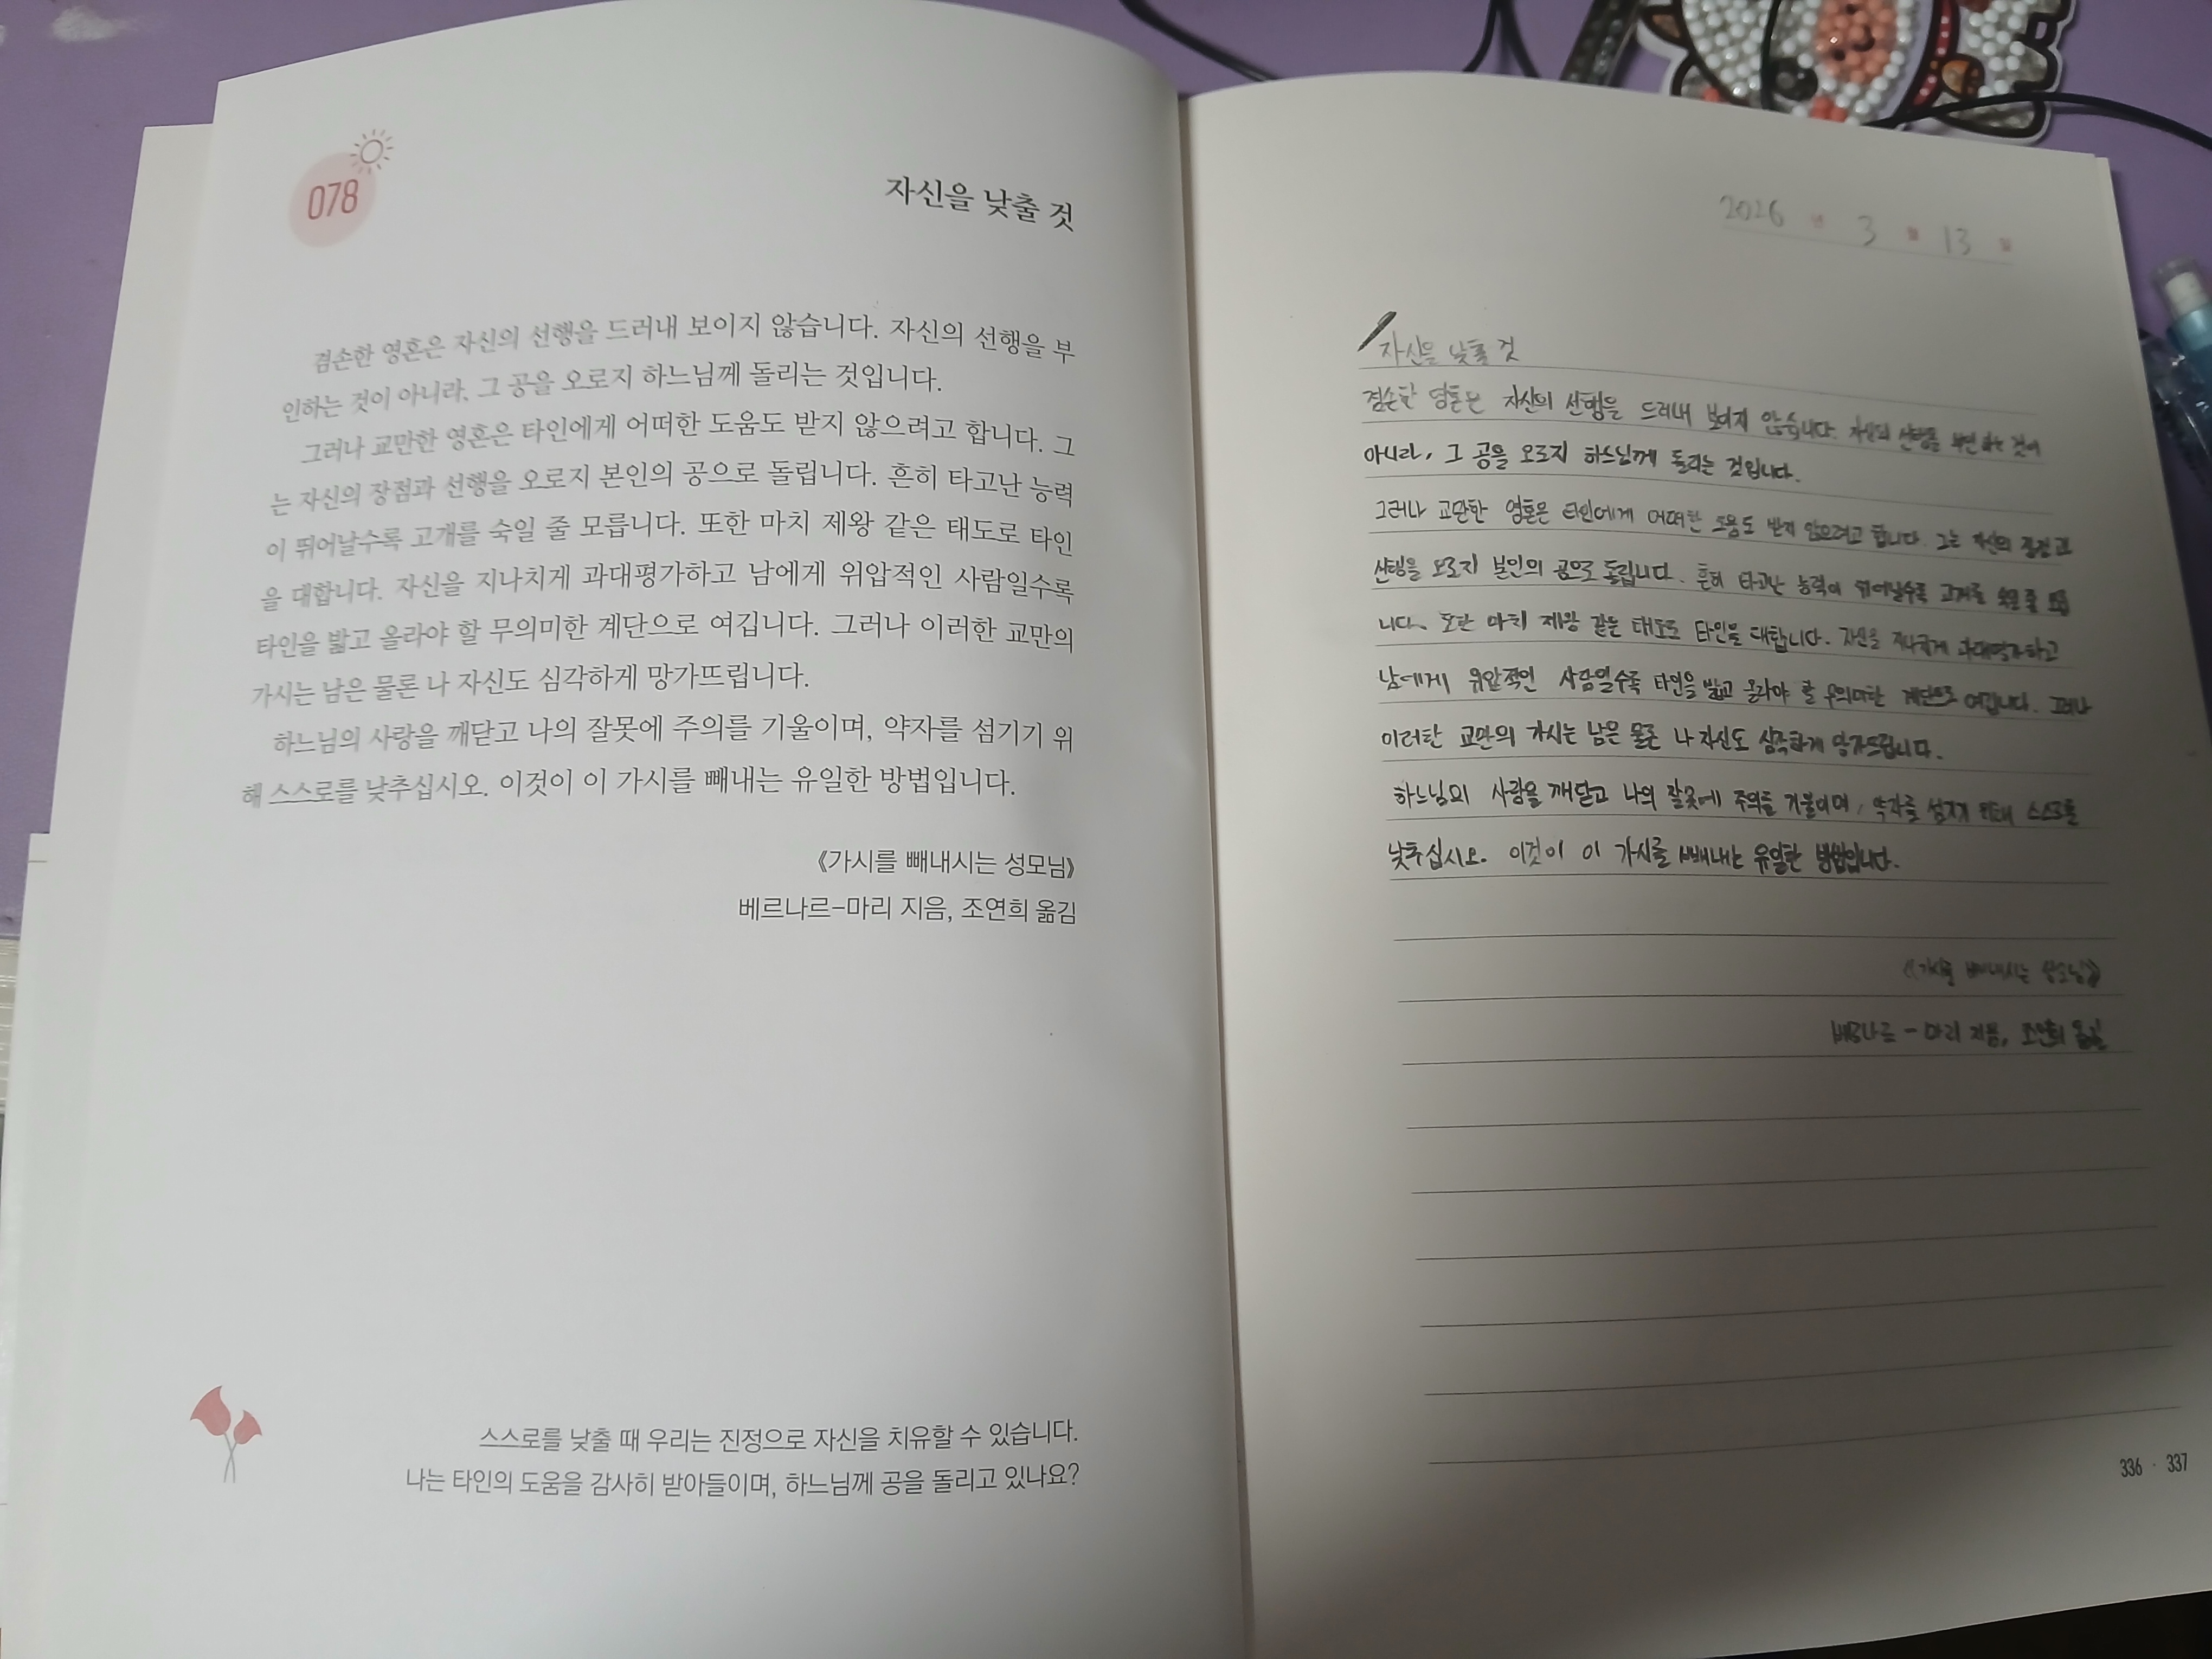 078
자신을 낮출 것
겸손한 영혼은 자신의 선행을 드러내 보이지 않습니다. 자신의 선행을 부
인하는 것이 아니라, 그 공을 오로지 하느님께 돌리는 것입니다.
그러나 교만한 영혼은 타인에게 어떠한 도움도 받지 않으려고 합니다. 그
는 자신의 장점과 선행을 오로지 본인의 공으로 돌립니다. 흔히 타고난 능력
이 뛰어날수록 고개를 숙일 줄 모릅니다. 또한 마치 제왕 같은 태도로 타인
을 대합니다. 자신을 지나치게 과대평가하고 남에게 위압적인 사람일수록
타인을 밟고 올라야 할 무의미한 계단으로 여깁니다. 그러나 이러한 교만의
가시는 남은 물론 나 자신도 심각하게 망가뜨립니다.
하느님의 사랑을 깨닫고 나의 잘못에 주의를 기울이며, 약자를 섬기기 위
해 스스로를 낮추십시오. 이것이 이 가시를 빼내는 유일한 방법입니다.
《가시를 빼내시는 성모님》
베르나르-마리 지음, 조연희 옮김
스스로를 낮출 때 우리는 진정으로 자신을 치유할 수 있습니다.
나는 타인의 도움을 감사히 받아들이며, 하느님께 공을 돌리고 있나요?
2026 년 3 월 13 일
자신을 낮출 것
겸손한 영혼은 자신의 선행을 드러내 보이지 않습니다. 자신의 선행을 부인하는 것이
아니라, 그 공을 오로지 하느님께 돌리는 것입니다.
그러나 교만한 영혼은 타인에게 어떠한 도움도 받지 않으려고 합니다. 그는 자신의 장점과
선행을 오로지 본인의 공으로 돌립니다. 흔히 타고난 능력이 뛰어날수록 고개를 숙일 줄 모릅
니다. 또한 마치 제왕 같은 태도로 타인을 대합니다. 자신을 지나치게 과대평가하고
남에게 위압적인 사람일수록 타인을 밟고 올라야 할 무의미한 계단으로 여깁니다. 그러나
이러한 교만의 가시는 남은 물론 나 자신도 심각하게 망가뜨립니다.
하느님의 사랑을 깨닫고 나의 잘못에 주의를 기울이며, 약자를 섬기기 위해 스스로를
낮추십시오. 이것이 이 가시를 빼내는 유일한 방법입니다.
《가시를 빼내시는 성모님》
베르나르-마리 지음, 조연희 옮김
336 · 337